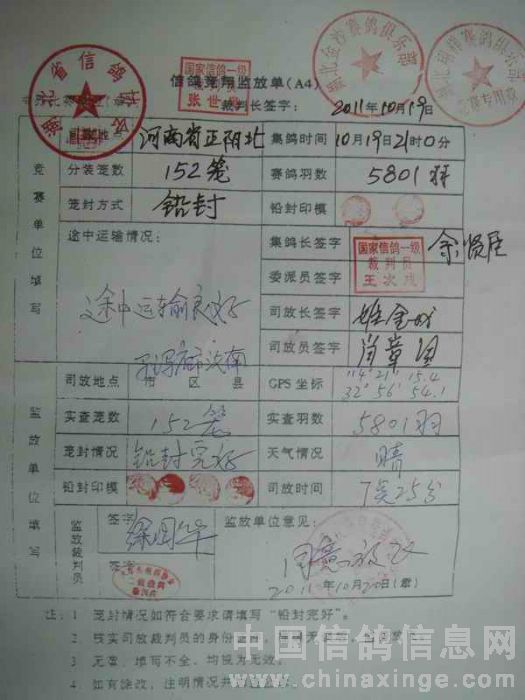 湖北省信鸽协会
国家信鸽一级
张世
湖北金沙赛鸽俱乐部
信鸽竞翔监放单(A4)
裁判长签字:
2011年10月19日
竞赛单位填写
河南省正阴北
集鸽时间
10月19日21时0分
分装笼数
152笼
赛鸽羽数
5801羽
笼封方式
铅封
铅封印模
途中运输情况:
途中运输良好
集鸽长签字
余贤臣
国家信鸽一级
裁判员
王次成
委派员签字
司放长签字
司放员签字
监放单位填写
司放地点
市 区 县
GPS 坐标
114°21′15.4
32°56′54.1
实查笼数
152笼
实查羽数
5801羽
笼封情况
铅封完好
天气情况
晴
铅封印模
司放时间
7点25分
监放裁判员
签字
签字
监放单位意见:
同意放飞
2011年10月20日(章)
注: 1 笼封情况如符合要求请填写“铅封完好”。
2 核实司放裁判员的身份
3 无章、填写不全、均视为无效。
4 如有涂改,注明情况并
中国信鸽信息网
www.chinaxinge.com